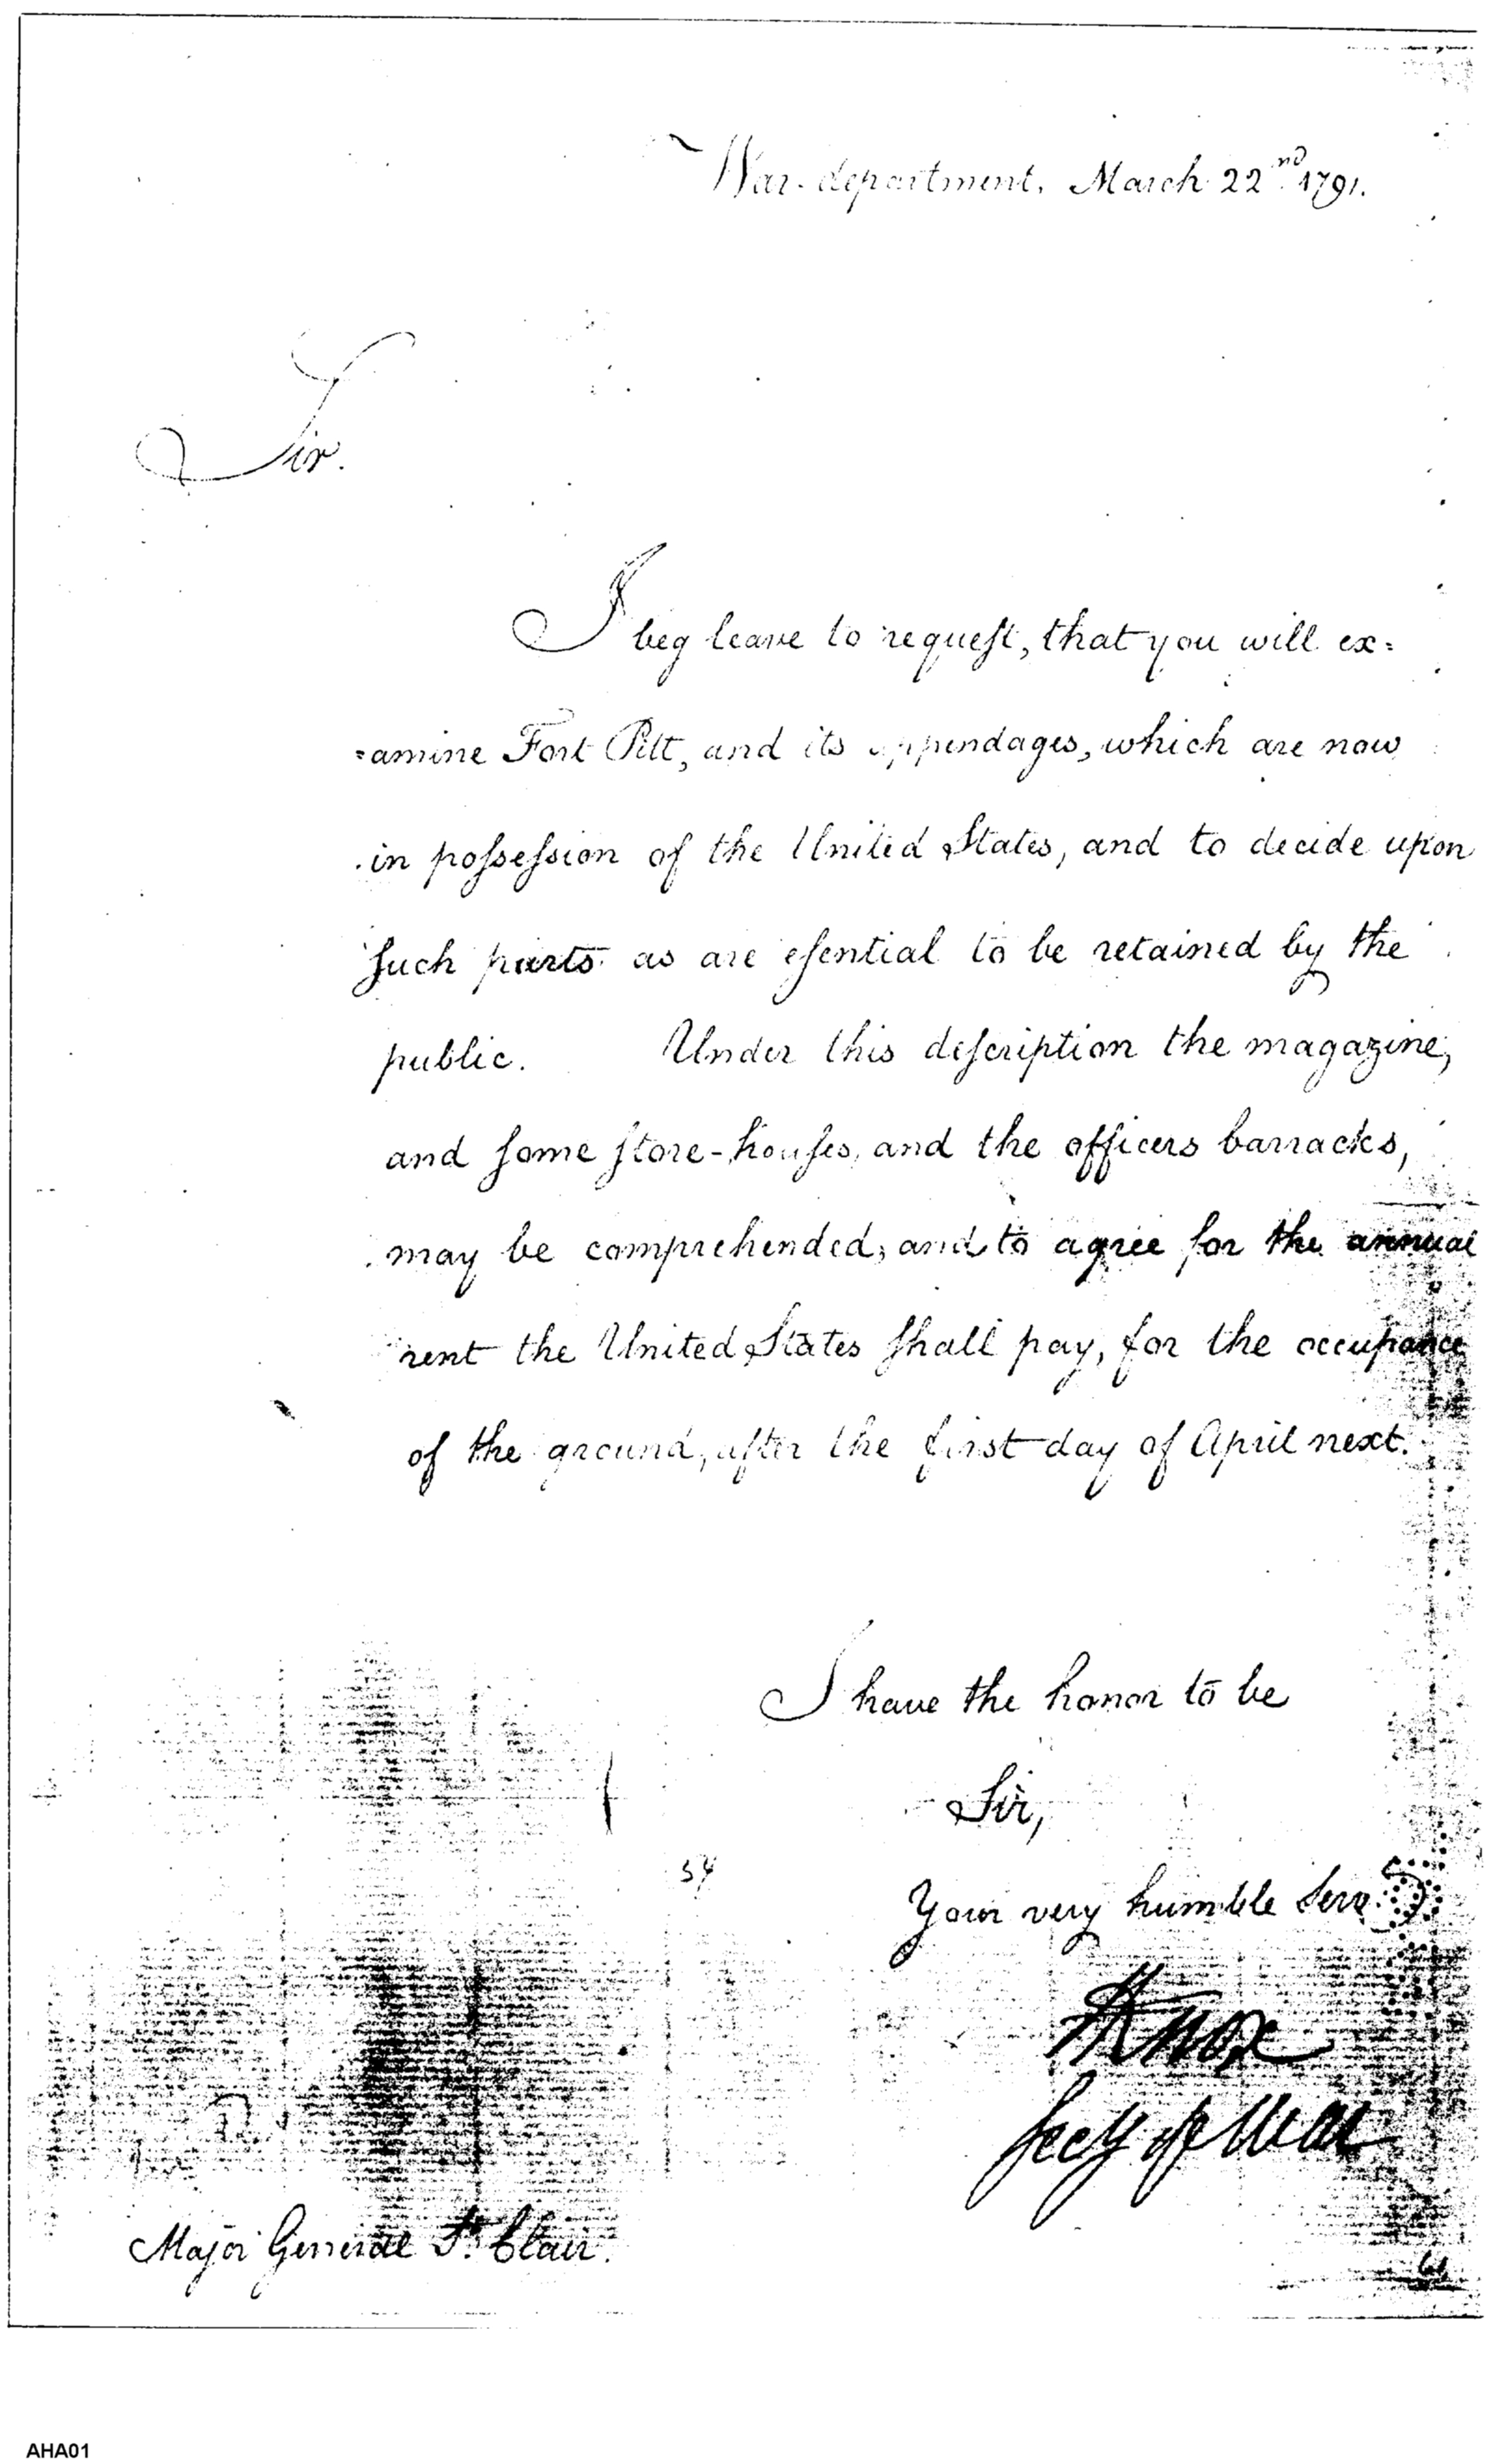 War-department, March 22nd 1791.
Sir.
I beg leave to request, that you will ex=
=amine Fort Pitt, and its appendages, which are now
in possession of the United States, and to decide upon
such parts as are esential to be retained by the
public. Under this description the magazine,
and some store-houses, and the officers barracks,
may be comprehended; and to agree for the annual
rent the United States shall pay, for the occupance
of the ground, after the first day of April next.
I have the honor to be
Sir,
54
Your very humble Serv.
HKnox
Secy of War
Major General St. Clair.
AHA01